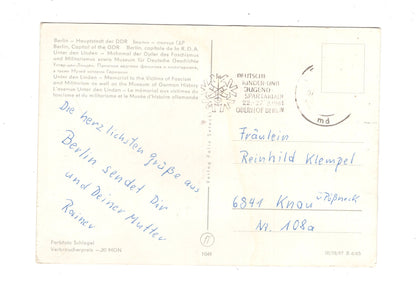 Berlin – Hauptstadt der DDR Берлин – столица ГДР
Berlin, Capital of the GDR Berlin, capitale de la R.D.A.
Unter den Linden – Mahnmal der Opfer des Faschismus
und Militarismus sowie Museum für Deutsche Geschichte
Унтер-ден-Линден – Памятник жертвам фашизма и милитаризма,
а также Музей истории Германии
Unter den Linden – Memorial to the Victims of Fascism
and Militarism as well as the Museum of German History
L'avenue Unter den Linden – Le mémorial aux victimes du
fascisme et du militarisme et le Musée d'histoire allemande
Die herzlichsten Grüße aus
Berlin sendet Dir
und Deiner Mutter
Rainer
Farbfoto Schlegel
Verbraucherpreis –,20 MDN
1041
DEUTSCHE
KINDER-UND
JUGEND
SPARTAKIADE
OBERHOF BERLIN
md
Fräulein
Reinhild Klempel
6841 Knau
ü/Pößneck
Nr. 108a